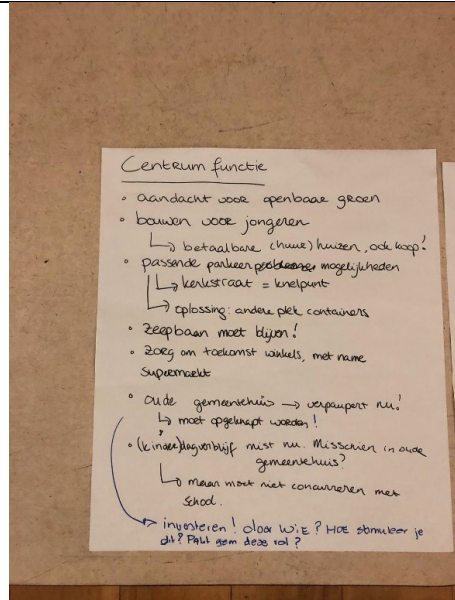 Centrum functie
◦ aandacht voor openbaar groen
◦ bouwen voor jongeren
↳ betaalbare (huur) huizen, ook koop!
◦ passende parkeer mogelijkheden
↳ kerkstraat = knelpunt
↳ oplossing: andere plek containers
• Zeepbaan moet blijven!
• zorg om toekomst winkels, met name
supermarkt
◦ oude gemeentehuis → verpaupert nu!
↳ moet opgeknapt worden!
◦ (kinder)dagverblijf mist nu. Misschien in oude
gemeentehuis?
↳ maar moet niet concurreren met
school.
→ investeren! door WIE? HOE stimuleer je
dit? Pakt gem deze rol?